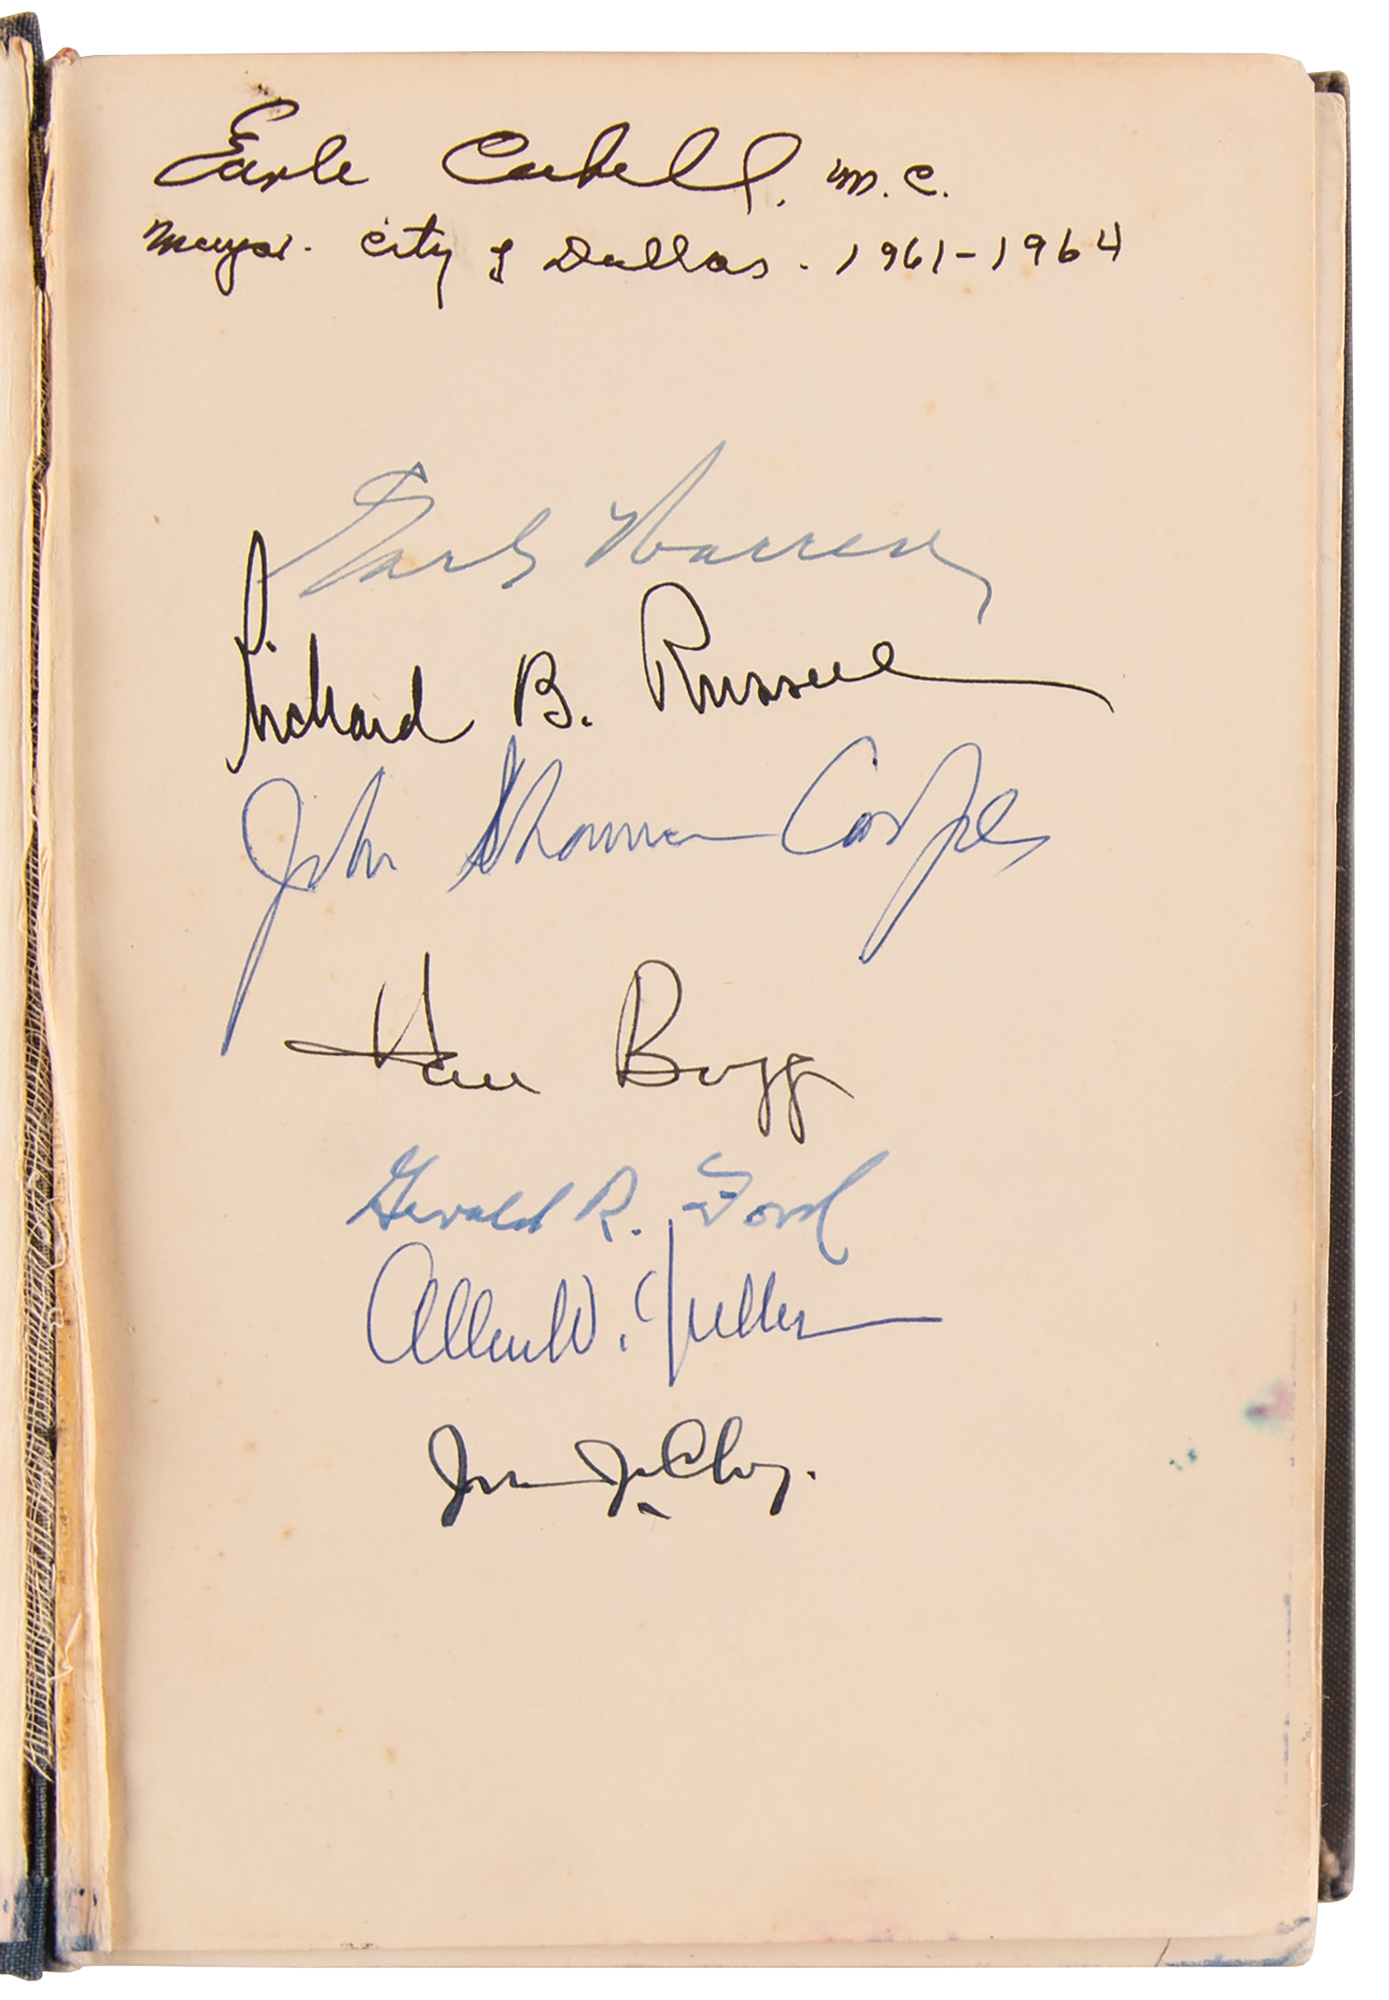 Earle Cabell, M.C.
Mayor. City of Dallas. 1961-1964
Earl Warren
Richard B. Russell
John Sherman Cooper
Hale Boggs
Gerald R. Ford
Allen W. Dulles
John J. McCloy.